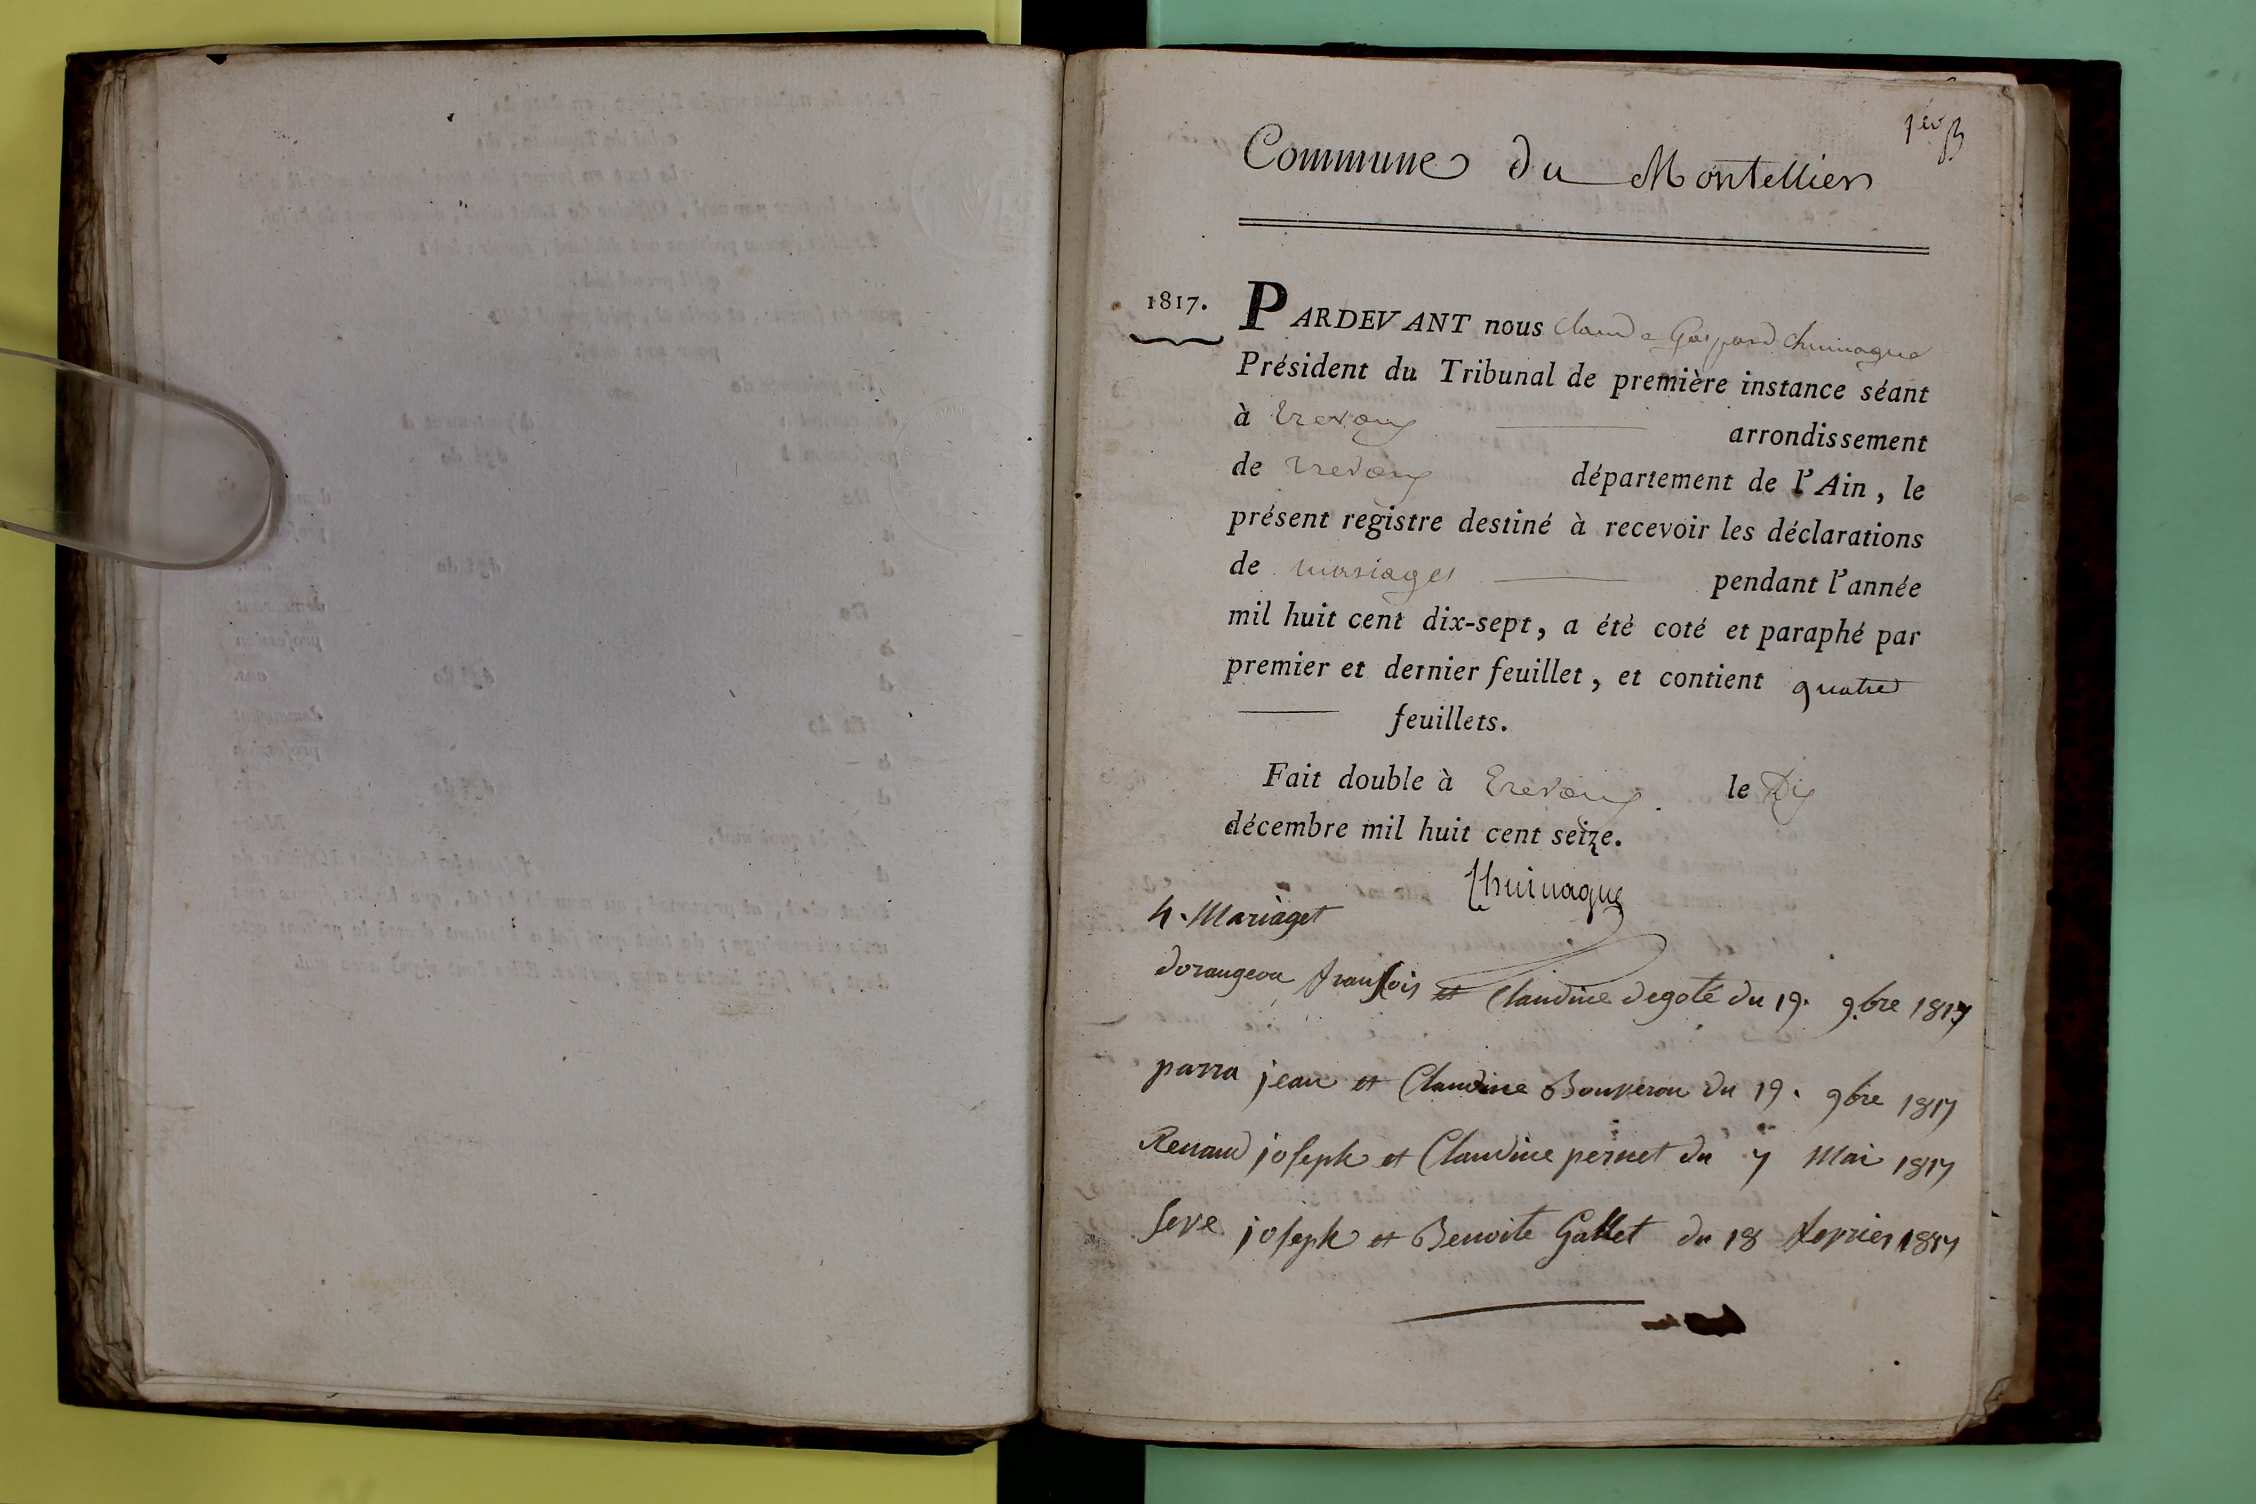 1er
Commune du Montellier
1817. PARDEVANT nous Claude Gaspard Chuinague
Président du Tribunal de première instance séant
à Trevoux arrondissement
de Trevoux département de l'Ain, le
présent registre destiné à recevoir les déclarations
de mariages pendant l'année
mil huit cent dix-sept, a été coté et paraphé par
premier et dernier feuillet, et contient quatre
feuillets.
Fait double à Trevoux. le Dix
décembre mil huit cent seize.
Chuinague
4. Mariages
dorangeon fransois et Claudine degoté du 19. 9.bre 1817
parra jean et Claudine Bouveron du 19. 9bre 1817
Renaud joseph et Claudine pernet du 7 Mai 1817
seve joseph et Benoite Gallet du 18 fevrier 1817